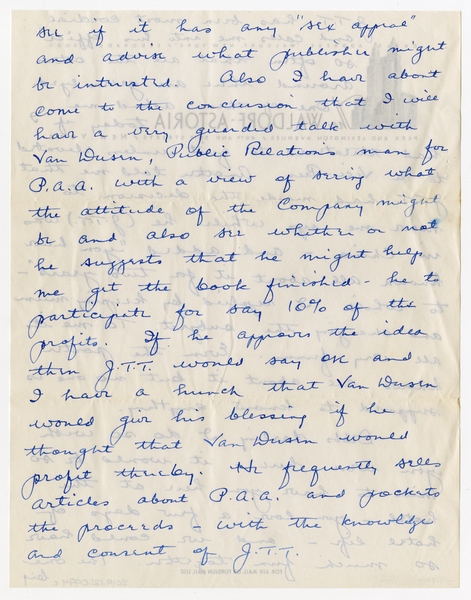 see if it has any "sex appeal"
and advise what publisher might
be interested. Also I have about
come to the conclusion that I will
have a very guarded talk with
Van Dusen, Public Relations man for
P.A.A. with a view of seeing what
the attitude of the Company might
be and also see whether or not
he suggests that he might help
me get the book finished - he to
participate for say 10% of the
profits. If he approves the idea
then J.T.T. would say OK and
I have a hunch that Van Dusen
would give his blessing if he
thought that Van Dusen would
profit thereby. He frequently sells
articles about P.A.A. and pockets
the proceeds - with the knowledge
and consent of J.T.T.